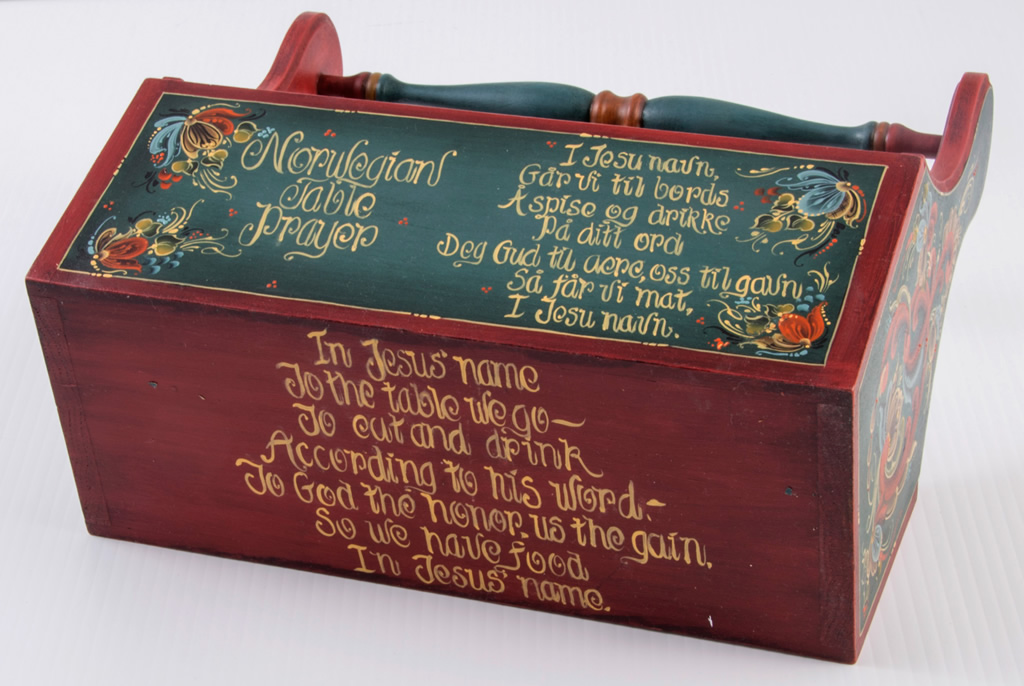 Norwegian
Table
Prayer
I Jesu navn,
Går vi til bords
Å spise og drikke
På ditt ord
Deg Gud til aere, oss til gavn,
Så får vi mat,
I Jesu navn.
In Jesus' name
To the table we go—
To eat and drink
According to his word.~
To God the honor, us the gain,
So we have food
In Jesus' name.